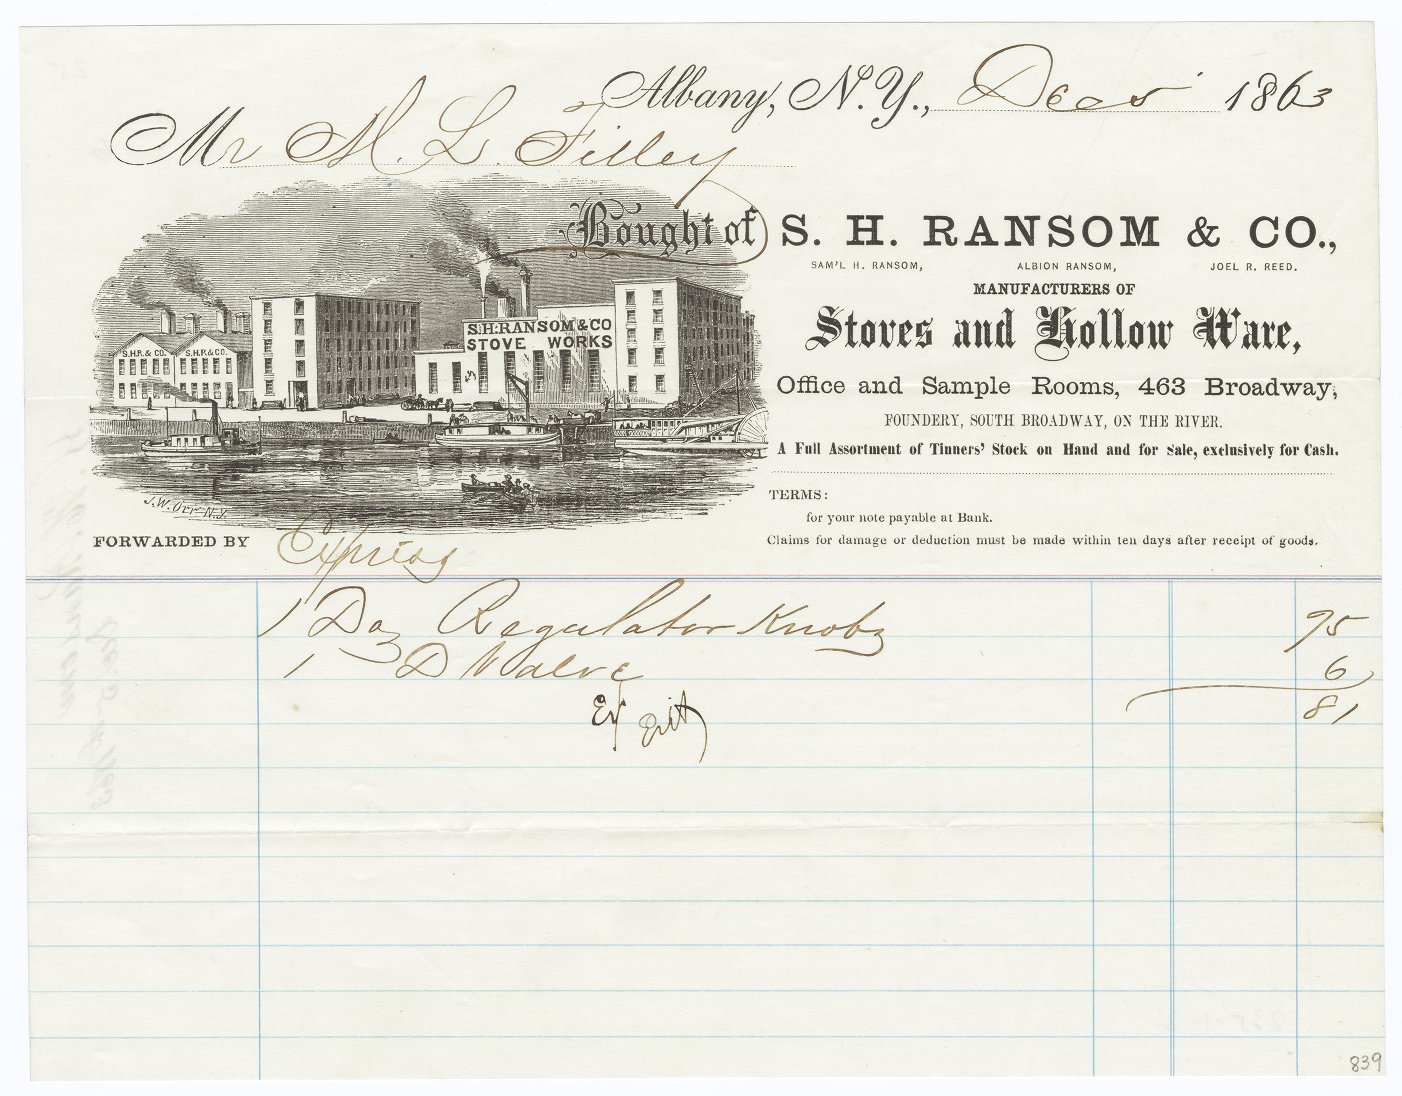 Albany, N.Y., Dec 5 1863
Mr M. L. Filley
Bought of S. H. RANSOM & CO.,
SAM'L H. RANSOM, ALBION RANSOM, JOEL R. REED.
MANUFACTURERS OF
Stoves and Hollow Ware,
Office and Sample Rooms, 463 Broadway,
FOUNDERY, SOUTH BROADWAY, ON THE RIVER.
A Full Assortment of Tinners' Stock on Hand and for Sale, exclusively for Cash.
S.H.RANSOM & CO
STOVE WORKS
S.H.R. & CO. S.H.R. & CO.
J.W. Orr N.Y.
TERMS:
for your note payable at Bank.
Claims for damage or deduction must be made within ten days after receipt of goods.
FORWARDED BY Express
1 Doz Regulator Knobs 75
1 D Valve 6
81
839